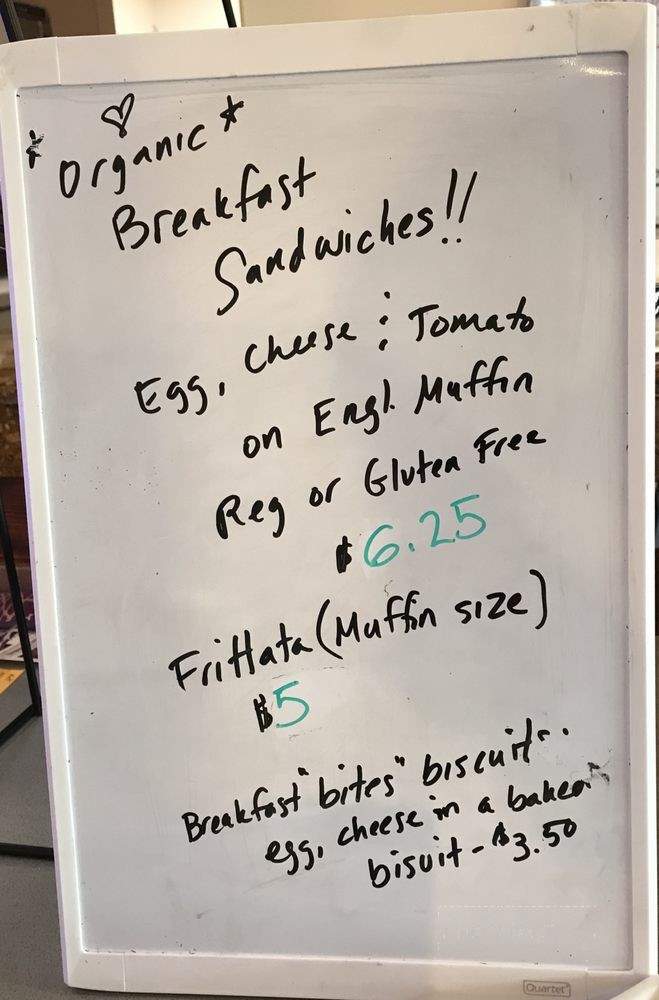 * Organic *
Breakfast
Sandwiches!!
Egg, Cheese : Tomato
on Engl. Muffin
Reg or Gluten Free
$6.25
Frittata (Muffin size)
$5
Breakfast "bites" biscuit..
egg, cheese in a baked
bisuit - $3.50
Quartet